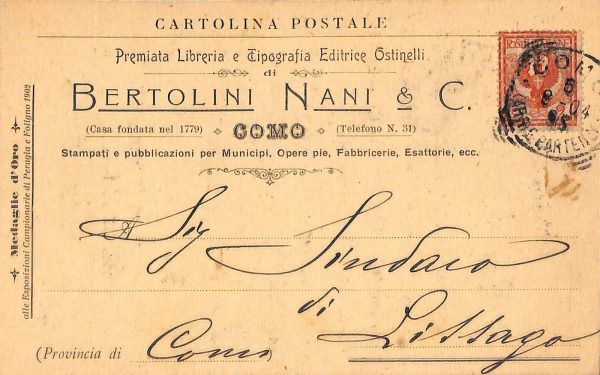 CARTOLINA POSTALE
Premiata Libreria e Tipografia Editrice Ostinelli
di
BERTOLINI NANI & C.
(Casa fondata nel 1779) COMO (Telefono N. 31)
Stampati e pubblicazioni per Municipi, Opere pie, Fabbricerie, Esattorie, ecc.
Medaglie d'Oro
alle Esposizioni Campionarie di Perugia e Foligno 1902
COMO
Al Sig Sindaco
di Lissago
(Provincia di Como)